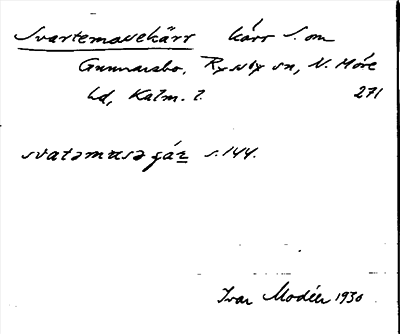 Svartemossekärr kärr S. om
Gunnarsbo, Ryssby sn, N. Möre
hd, Kalm. l. 271
svatəmɯsəɟáɽ s. 144.
Ivar Modéer 1930